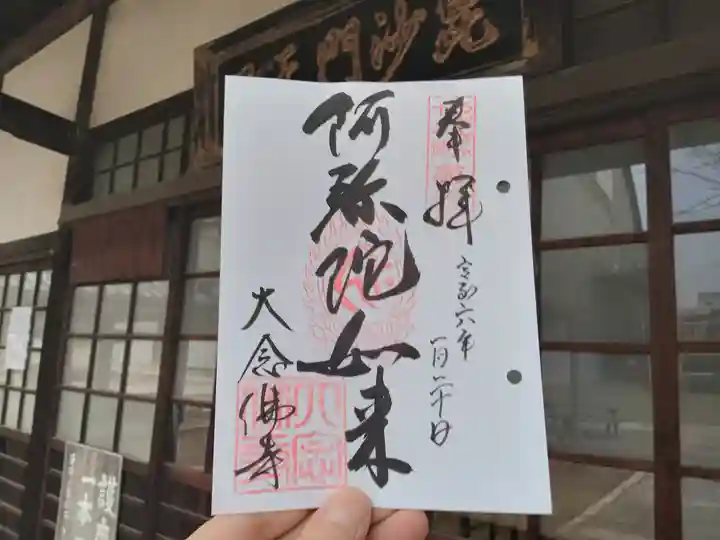 毘沙門天
奉拝
令和六年
一月二十日
阿弥陀如来
大念佛寺